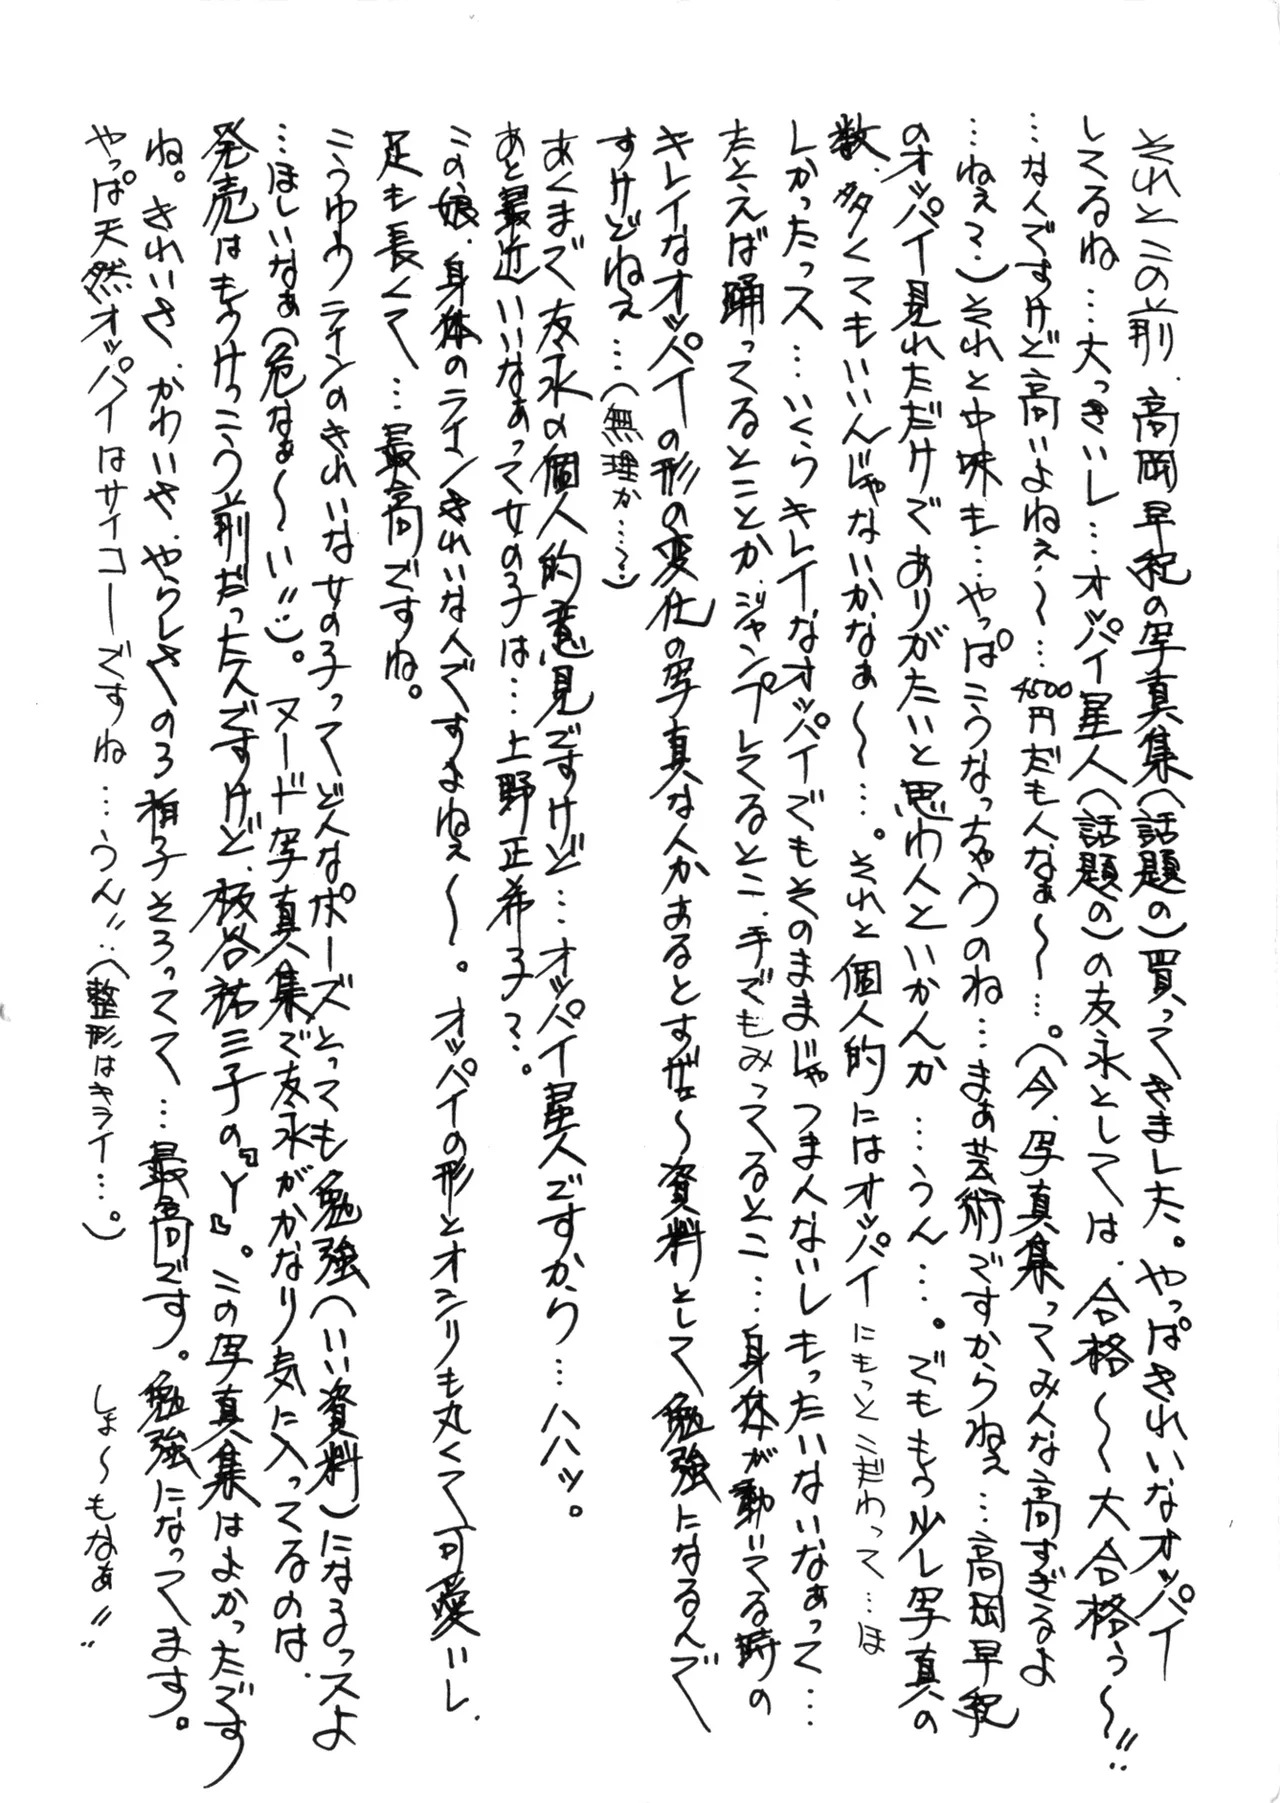 それとこの前、高岡早紀の写真集(話題の)買ってきました。やっぱきれいなオッパイ
してるね…大っきいし…オッパイ星人(話題の)の友永としては、合格〜大合格ぅ〜!!
…なんですけど高いよねぇ〜…4500円だもんなぁ〜…。(今、写真集ってみんな高すぎるよ
…ねぇ?)それと中味も…やっぱこうなっちゃうのね…まぁ芸術ですからねぇ…高岡早紀
のオッパイ見れただけでありがたいと思わんといかんか…うん…。でももう少し写真の
数、多くてもいいんじゃないかなぁ〜…。それと個人的にはオッパイにもっとこだわって…ほ
しかったっス…いくらキレイなオッパイでもそのままじゃつまんないしもったいないなぁって…
たとえば踊ってるとことか、ジャンプしてるとこ、手でもみってるとこ…身体が動いてる時の
キレイなオッパイの形の変化の写真なんかあるとすげェ〜資料として勉強になるんで
すけどねぇ…(無理か…?)
あくまで友永の個人的意見ですけど…オッパイ星人ですから…ハハッ。
あと最近いいなぁって女の子は…上野正希子?。
この娘、身体のラインきれいな人ですよねぇ〜。オッパイの形とオシリも丸くて可愛いし、
足も長くて…最高ですね。
こうゆうラインのきれいな女の子ってどんなポーズとっても勉強(いい資料)になるっスよ
…ほしいなぁ(危なぁ〜い!!)。ヌード写真集で友永がかなり気に入ってるのは、
発売はもうけっこう前だったんですけど、板谷祐三子の『Y』。この写真集はよかったです
ね。きれいさ、かわいさ、やらしさの3拍子そろってて…最高です。勉強になってます。
やっぱ天然オッパイはサイコーですね…うん!!…(整形はキライ…。)
しょ〜もなぁ!!